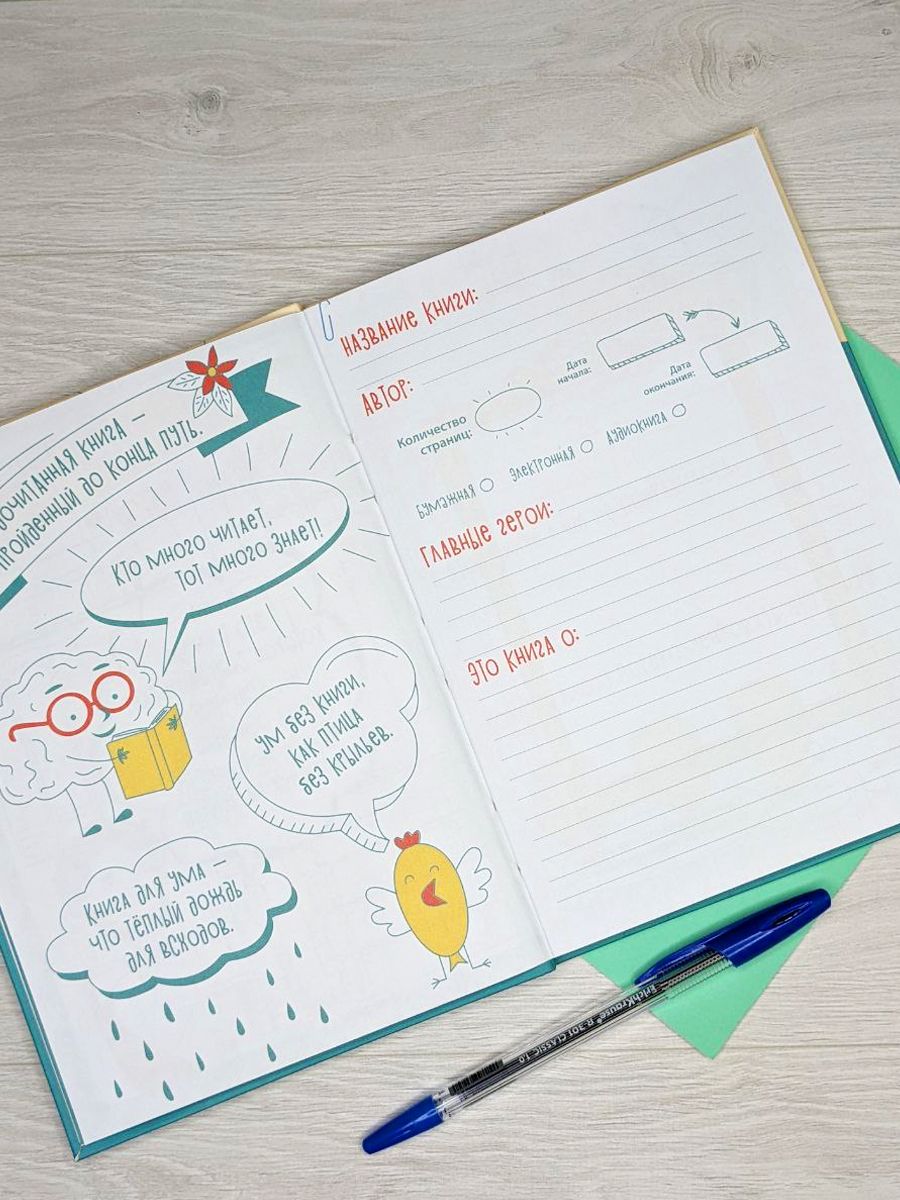 ПРОЙДЕННЫЙ ДО КОНЦА ПУТЬ.
КНИГА —
КТО МНОГО ЧИТАЕТ,
ТОТ МНОГО ЗНАЕТ!
УМ БЕЗ КНИГИ,
КАК ПТИЦА
БЕЗ КРЫЛЬЕВ.
КНИГА ДЛЯ УМА —
ЧТО ТЁПЛЫЙ ДОЖДЬ
ДЛЯ ВСХОДОВ.
НАЗВАНИЕ КНИГИ:
АВТОР:
Количество
страниц:
Дата
начала:
Дата
окончания:
БУМАЖНАЯ ЭЛЕКТРОННАЯ АУДИОКНИГА
ГЛАВНЫЕ ГЕРОИ:
ЭТО КНИГА О:
ErichKrause® R-301 CLASSIC 1.0